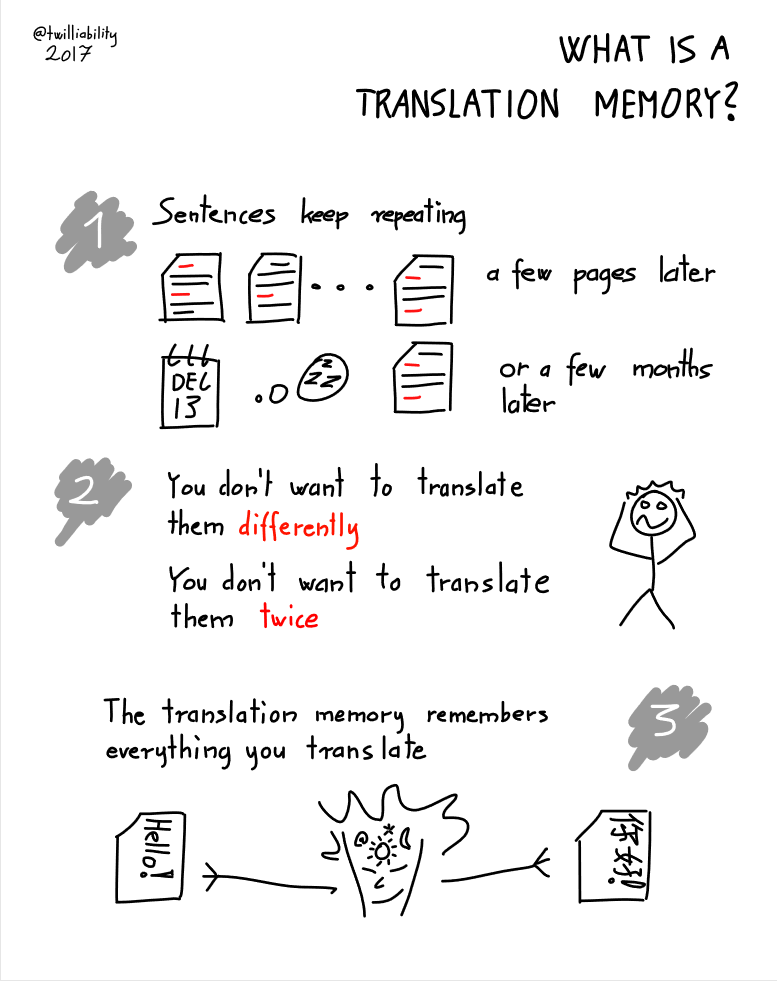 @twilliability
2017
WHAT IS A
TRANSLATION MEMORY?
1
Sentences keep repeating
a few pages later
DEC
13
z
ZZ
or a few months
later
2
You don't want to translate
them differently
You don't want to translate
them twice
3
The translation memory remembers
everything you translate
Hello!
你好!